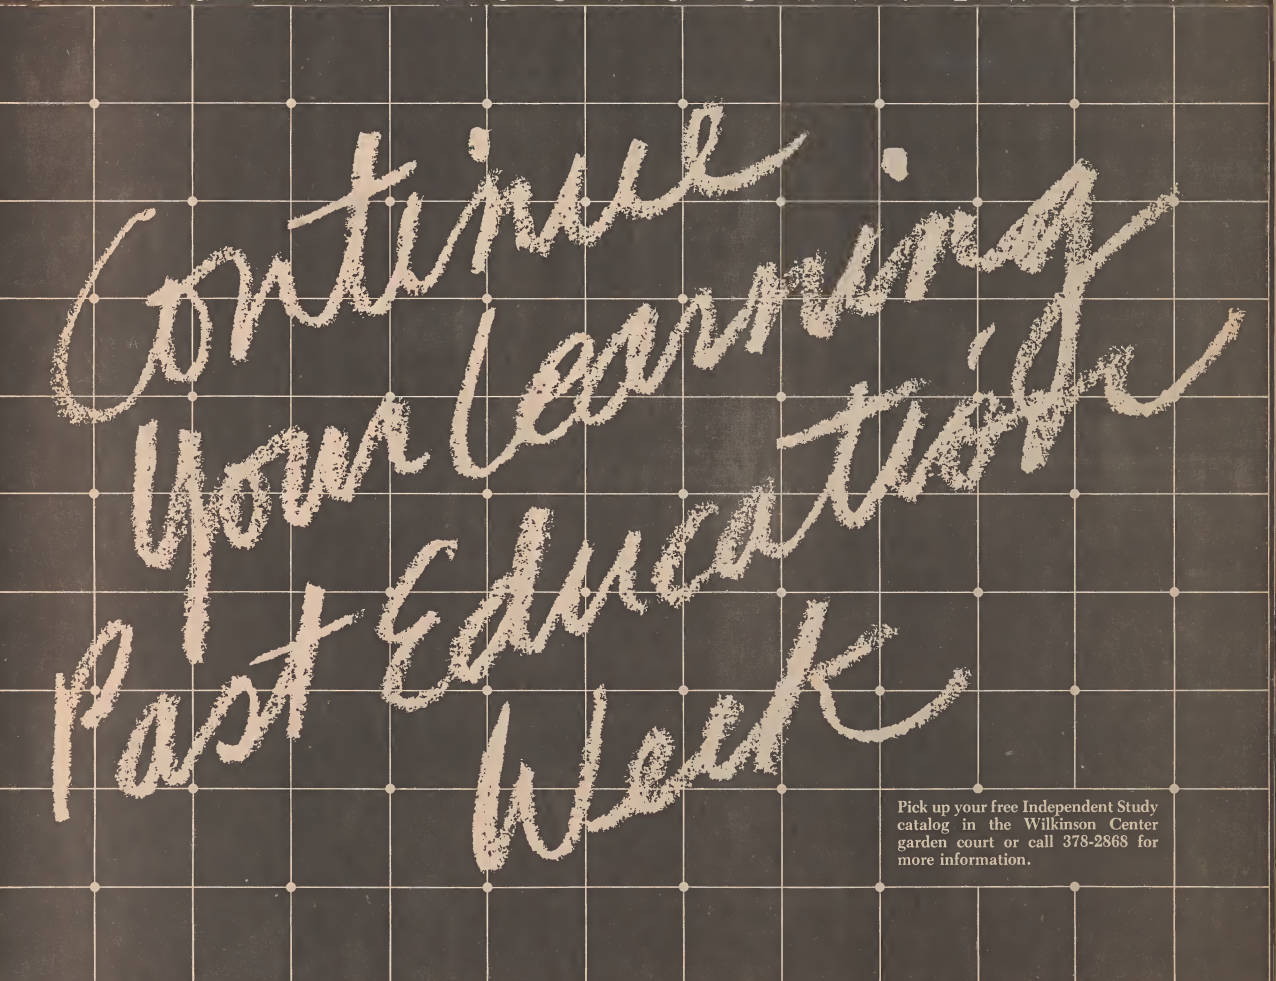 Continue
Your Learning
Past Education
Week
Pick up your free Independent Study
catalog in the Wilkinson Center
garden court or call 378-2868 for
more information.